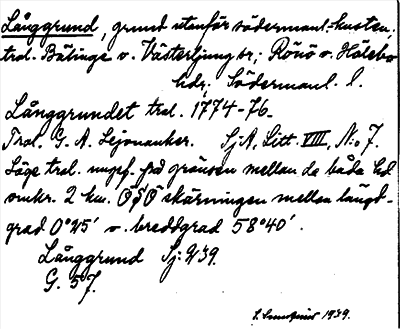 Långgrund, grund utanför södermanl.-kusten,
trol. Bälinge o. Västerljung sr; Rönö o. Hölebo
hdr; Södermanl. l.
Långgrundet trol. 1774-76.
Trol. G. A. Lejonanker. SjA, Litt. VIII, N:o 7.
Läge trol. ungef. på gränsen mellan de båda hd
omkr. 2 km. OSO skärningen mellan längd-
grad 0°25' o. breddgrad 58°40'.
Långgrund Sj: 9/39.
G. 57.
1939.